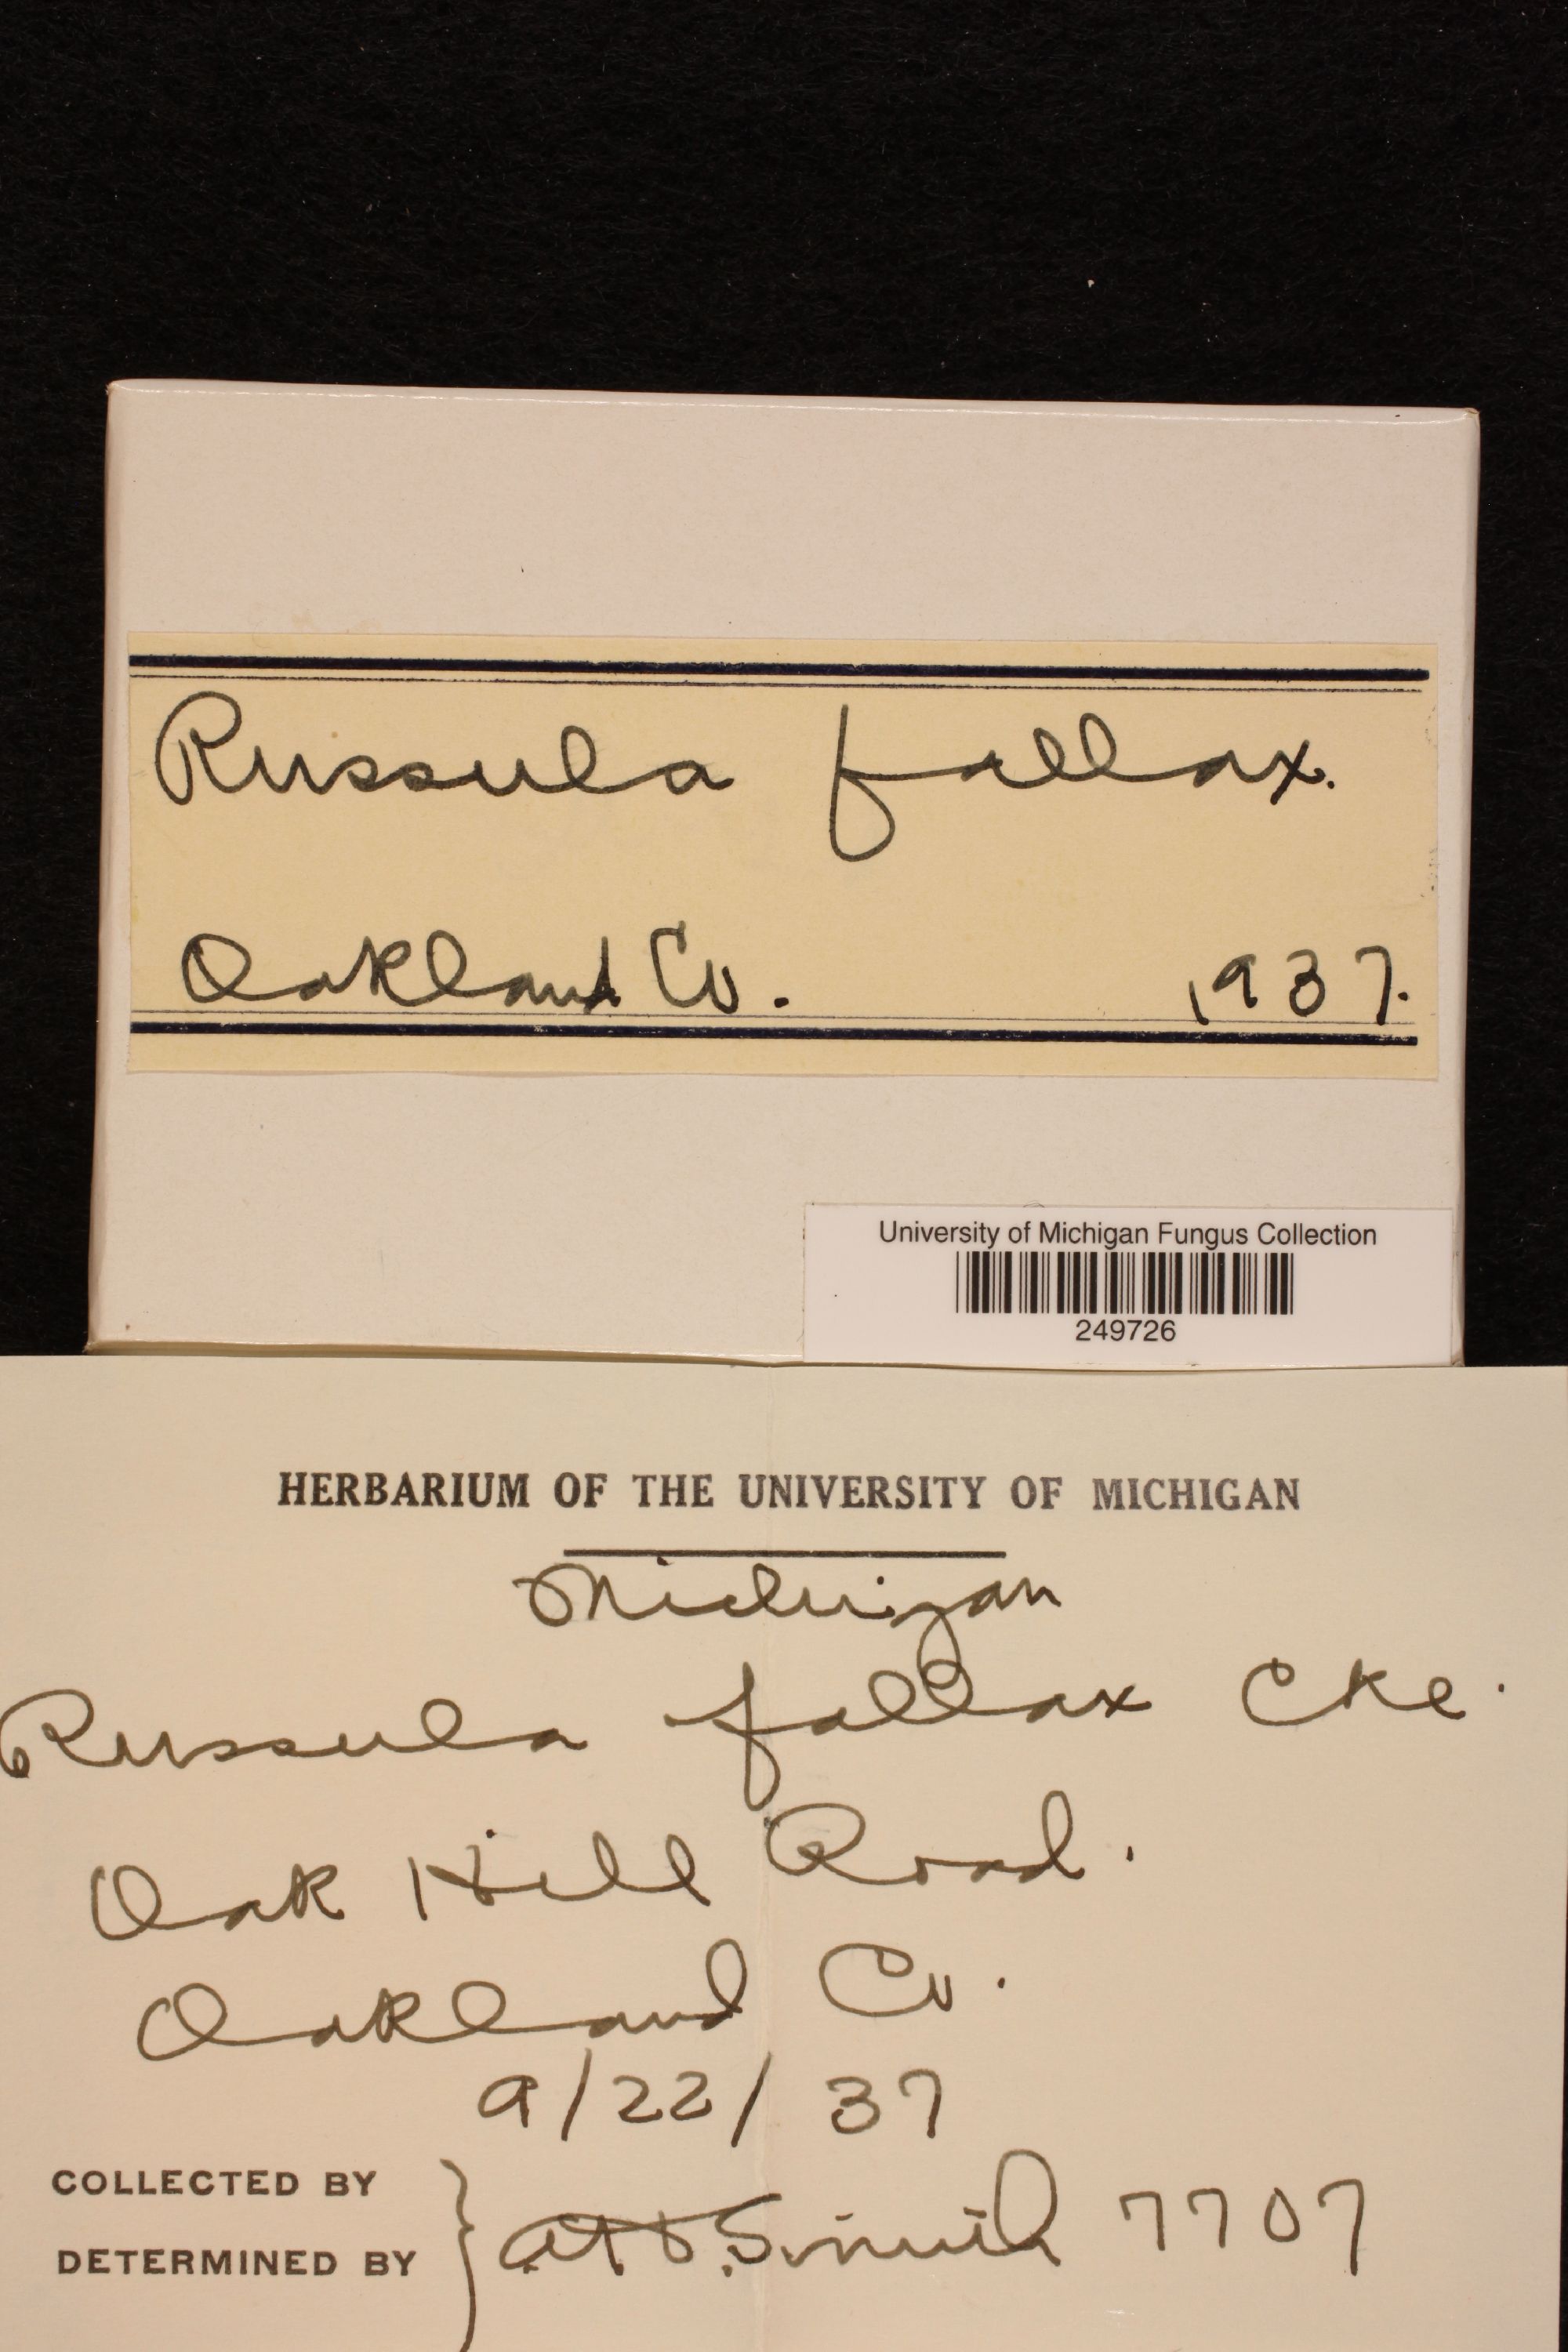 Russula fallax.
Oakland Co. 1937.
University of Michigan Fungus Collection
249726
HERBARIUM OF THE UNIVERSITY OF MICHIGAN
Michigan
Russula fallax Cke.
Oak Hill Road.
Oakland Co.
9/22/37
COLLECTED BY
DETERMINED BY } A.H. Smith 7707